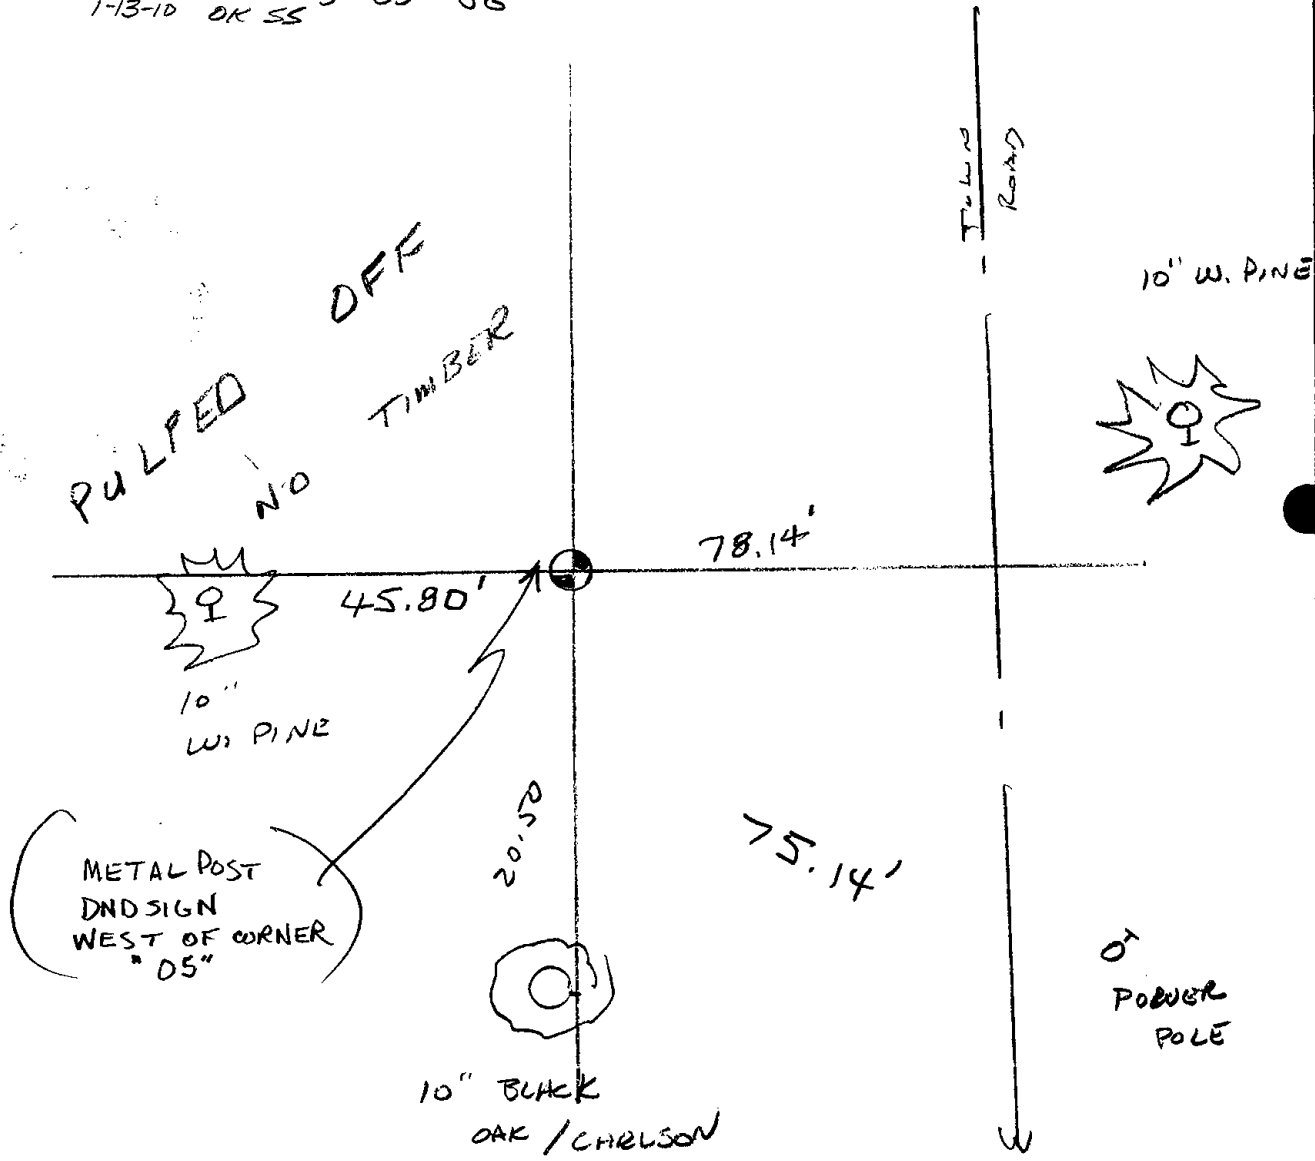 1-13-10 OK SS
Town
Road
10" W. PINE
PULPED OFF
NO TIMBER
78.14'
45.80'
10"
W. PINE
20.50
75.14'
METAL POST
DND SIGN
WEST OF CORNER
"05"
POWER
POLE
10" BLACK
OAK / CHELSON